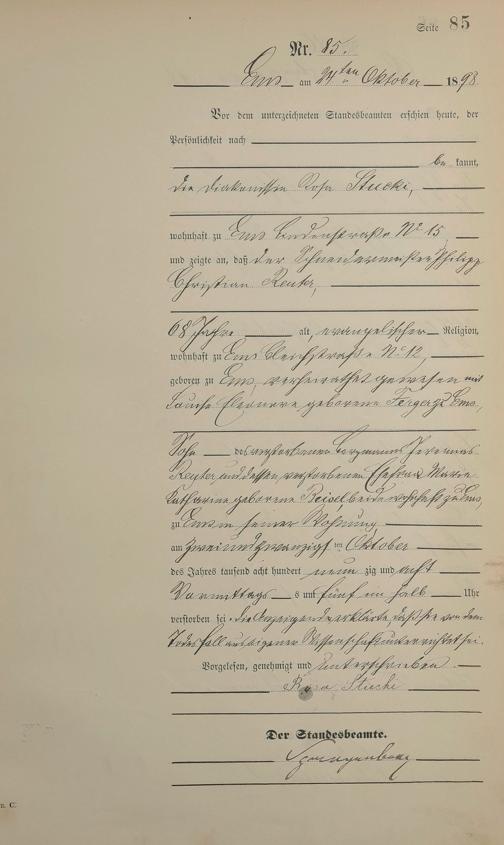 Seite 85
Nr. 85.
Ems am 24ten Oktober 1898
Vor dem unterzeichneten Standesbeamten erschien heute, der
Persönlichkeit nach
be kannt,
die Diakonissin Rosa Stucki,
wohnhaft zu Ems Lindenstraße No 15,
und zeigte an, daß der Schneidermeister Philipp
Christian Reuter,
68 Jahre alt, evangelischer Religion,
wohnhaft zu Ems Bleichstraße No 12,
geboren zu Ems, verheirathet gewesen mit
Eleonore geborene zu Ems,
Sohn des verstorbenen Bergmanns
Reuter und dessen verstorbenen Ehefrau Marie
Katharine geborene Beisel beide wohnhaft zu Ems,
zu Ems in seiner Wohnung
am zwei und zwanzigst en Oktober
des Jahres tausend acht hundert neun zig und acht
Vormittags um fünf ein halb Uhr
verstorben sei. Die Anzeigende erklärte, daß sie von dem
Todesfall aus eigener Wissenschaft unterrichtet sei.
Vorgelesen, genehmigt und unterschrieben
Rosa Stucki
Der Standesbeamte.
n. C.